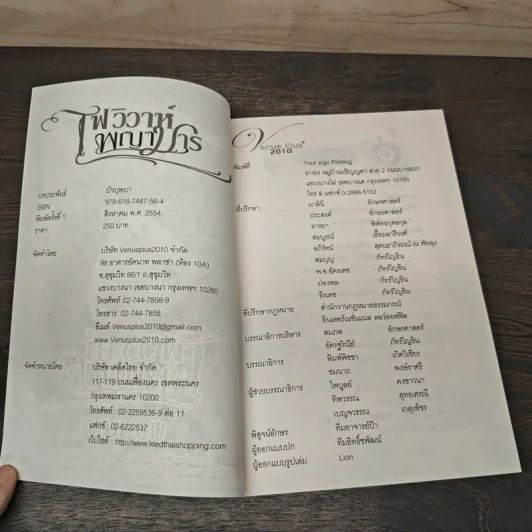 ไฟวิวาห์
พญามาร
บทประพันธ์ บัวบุษบา
ISBN 978-616-7487-56-4
พิมพ์ครั้งที่ 1 สิงหาคม พ.ศ. 2554
ราคา 250 บาท
จัดทำโดย บริษัท Venusplus2010 จำกัด
98 อาคารอัคนาท พลาซ่า (ห้อง 10A)
ซ.สุขุมวิท 66/1 ถ.สุขุมวิท
แขวงบางนา เขตบางนา กรุงเทพฯ 10260
โทรศัพท์ 02-744-7858-9
โทรสาร 02-744-7858
อีเมล์ Venusplus2010@gmail.com
www.Venusplus2010.com
จัดจำหน่ายโดย บริษัท เคล็ดไทย จำกัด
117-119 ถนนเฟื่องนคร เขตพระนคร
กรุงเทพมหานคร 10200
โทรศัพท์ : 02-2259536-9 ต่อ 11
แฟกซ์ : 02-6222537
เว็บไซต์ : http://www.kledthaishopping.com
Venus Plus+
2010
พิมพ์ที่ Your sign Printing
91/64 หมู่บ้านปริญญดา สาย 2 ถนนบางแวก
แขวงบางไผ่ เขตบางแค กรุงเทพฯ 10160
โทร & แฟกซ์ 0-2886-5102
ที่ปรึกษา มาลินี อักษรศาสตร์
ประสงค์ อักษรศาสตร์
อารมา พิศัทธกุศลกุล
สมบูรณ์ เอื้อมอารีวงศ์
อภิรัตน์ ณ พัทลุง
สมบุญ ภัทร์โญชิน
พ.อ.อัครเดช ภัทร์โญชิน
ปองพล ภัทร์โญชิน
ธีรเดช ภัทร์โญชิน
ที่ปรึกษากฎหมาย สำนักงานกฎหมายธรรมภรณ์
อินเตอร์เนชั่นแนล ลอว์ออฟฟิต
บรรณาธิการบริหาร สมภพ อักษรศาสตร์
อัครฐริณีย์ ภัทร์โญชิน
บรรณาธิการ พิมพ์พิชชา เกิดวิเชียร
ชมนาถ พงษ์ราศรี
ผู้ช่วยบรรณาธิการ ไพบูลย์ คงขาวนา
ทิพวรรณ สุทธเศรณี
เบญจวรรณ เกตุเพ็ชร
พิสูจน์อักษร ทีมอาจารย์ป้า
ผู้ออกแบบปก ทีมอิทธิ์ชพัฒน์
ผู้ออกแบบรูปเล่ม Lion